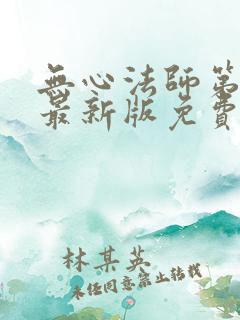 無心法師第
最新版免費
林某英
未经同意禁止转载